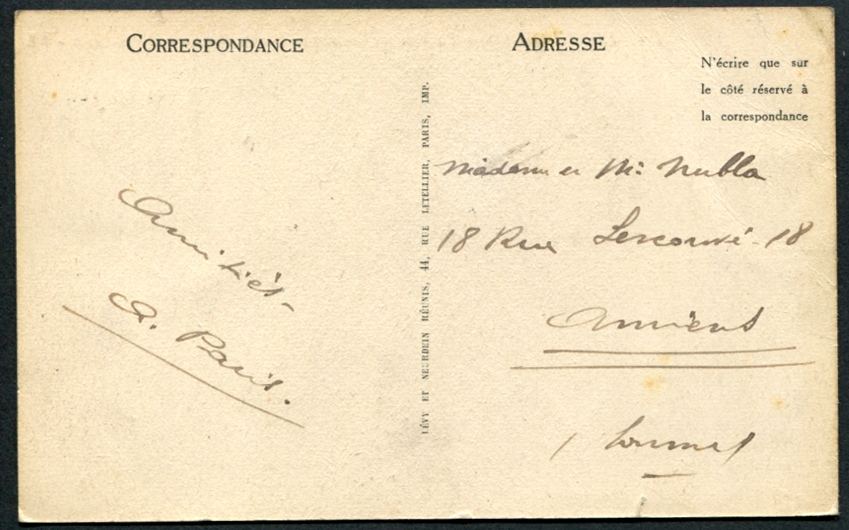 CORRESPONDANCE
Amitiés
A. Paris.
LÉVY ET NEURDEIN RÉUNIS, 44, RUE LETELLIER, PARIS, IMP.
ADRESSE
N'écrire que sur
le côté réservé à
la correspondance
Madame et Mr
18 Rue 18
Amiens
(Somme)